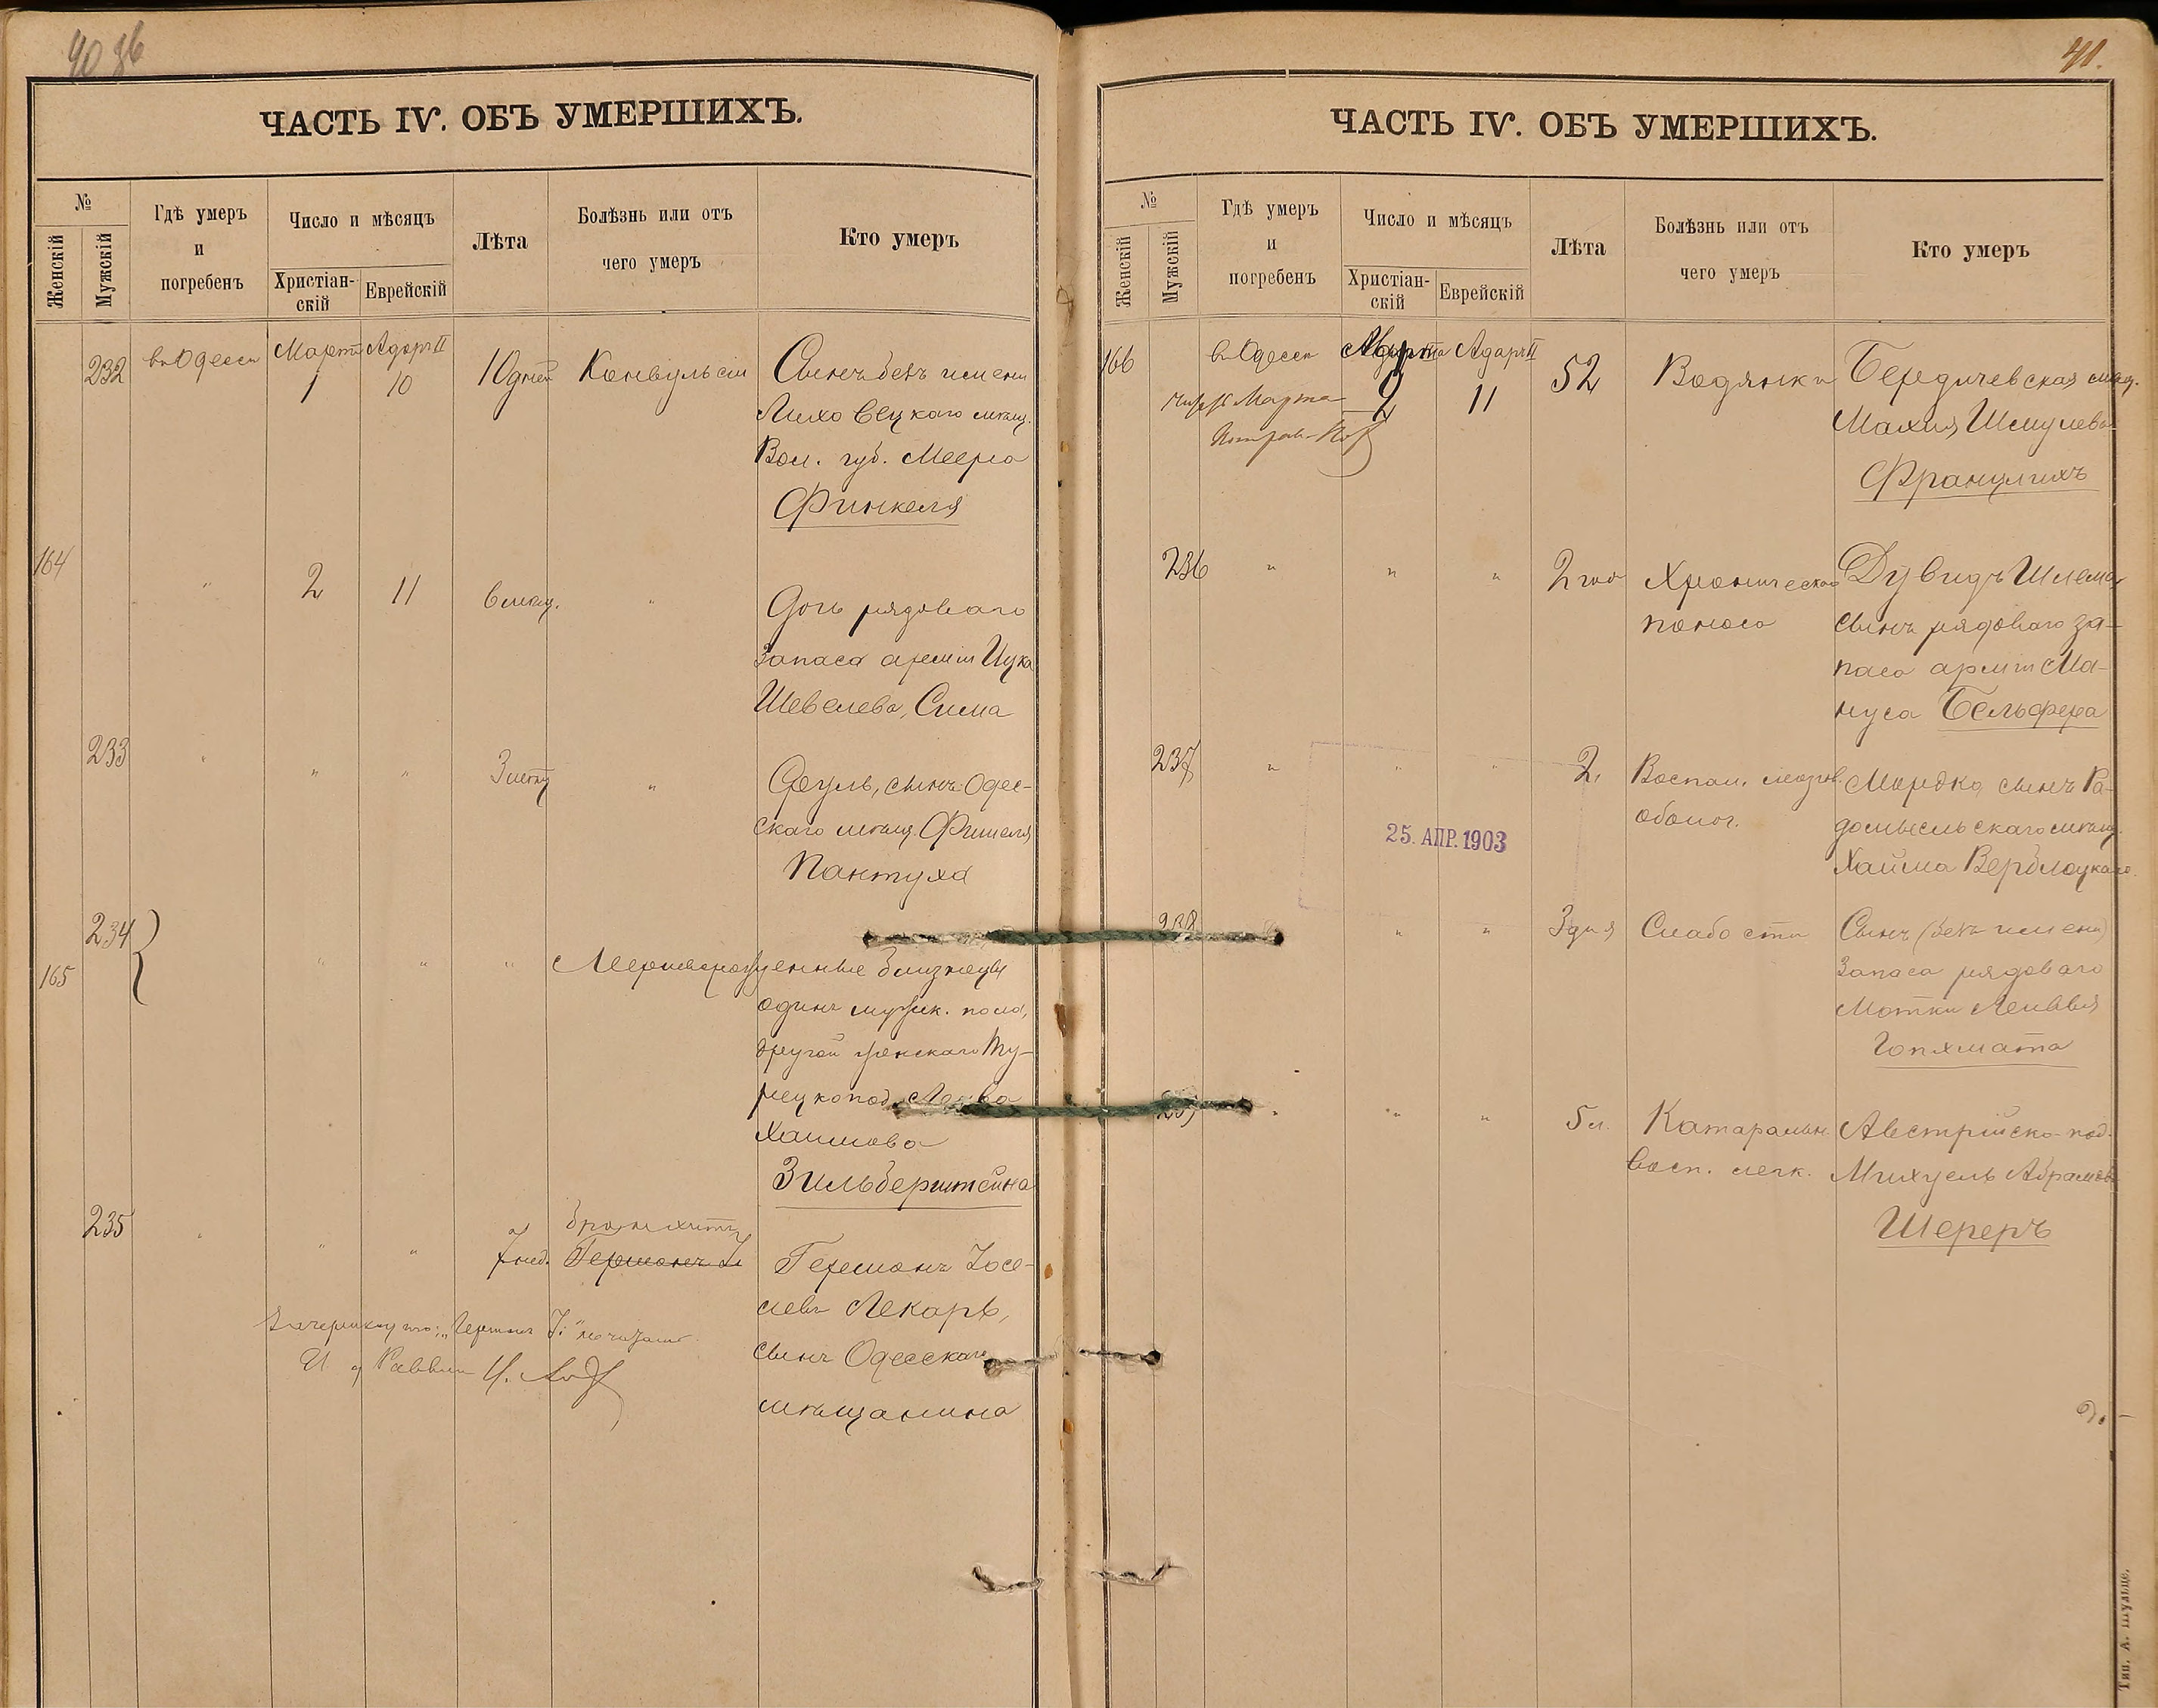 40 об
ЧАСТЬ IV. ОБЪ УМЕРШИХЪ.
№
Женскій
Мужскій
Гдѣ умеръ
и
погребенъ
Число и мѣсяцъ
Христіан-
скій
Еврейскій
Лѣта
Болѣзнь или отъ
чего умеръ
Кто умеръ
232
въ Одессѣ
Марта
1
Адаръ II
10
10 дней
Конвульсіи
Сынъ безъ имени
мѣщ.
Вол. губ. Меера
Финкеля
164
"
2
11
6 мѣсяц.
"
Дочь рядоваго
запаса арміи Ицка
Шевелева, Сима
233
"
"
"
3 лѣтъ
"
сынъ Одес-
скаго мѣщ. Фишеля
Пантуха
234
165
"
"
"
Мертворожденные близнецы
одинъ мужск. пола,
другой женскаго Ту-
рецкопод. Лейба
Хаимова
Зильберштейна
235
"
"
"
7 нед.
бронхитъ
Германъ І
Германъ Іосе-
левъ Лекарь,
сынъ Одесскаго
мѣщанина
Зачеркнутое: „Германъ І" не читать
И. д. Раввина
41.
ЧАСТЬ IV. ОБЪ УМЕРШИХЪ.
№
Женскій
Мужскій
Гдѣ умеръ
и
погребенъ
Число и мѣсяцъ
Христіан-
скій
Еврейскій
Лѣта
Болѣзнь или отъ
чего умеръ
Кто умеръ
166
въ Одессѣ
Марта
2
Адаръ II
11
52
Водянки
Бердичевская мѣщ.
Махля Шмулева
Марта
236
"
"
"
2 год
Хроническаго
поноса
Дувидъ Шлема,
сынъ рядоваго за-
паса арміи Ма-
нуса Бельфера
237
"
"
"
2.
Воспал. мозгов.
оболоч.
Мордко, сынъ Ра-
домысльскаго мѣщ.
Хаима Верблоцкаго.
25. АПР. 1903
238
"
"
3 дня
Слабости
Сынъ (безъ имени)
запаса рядоваго
Мотки Лейбы
239
"
"
"
5 л.
Катаральн.
восп. легк.
Австрійско-под.
Михуель Абрамовъ
Шереръ
Тип. А. Шульце,